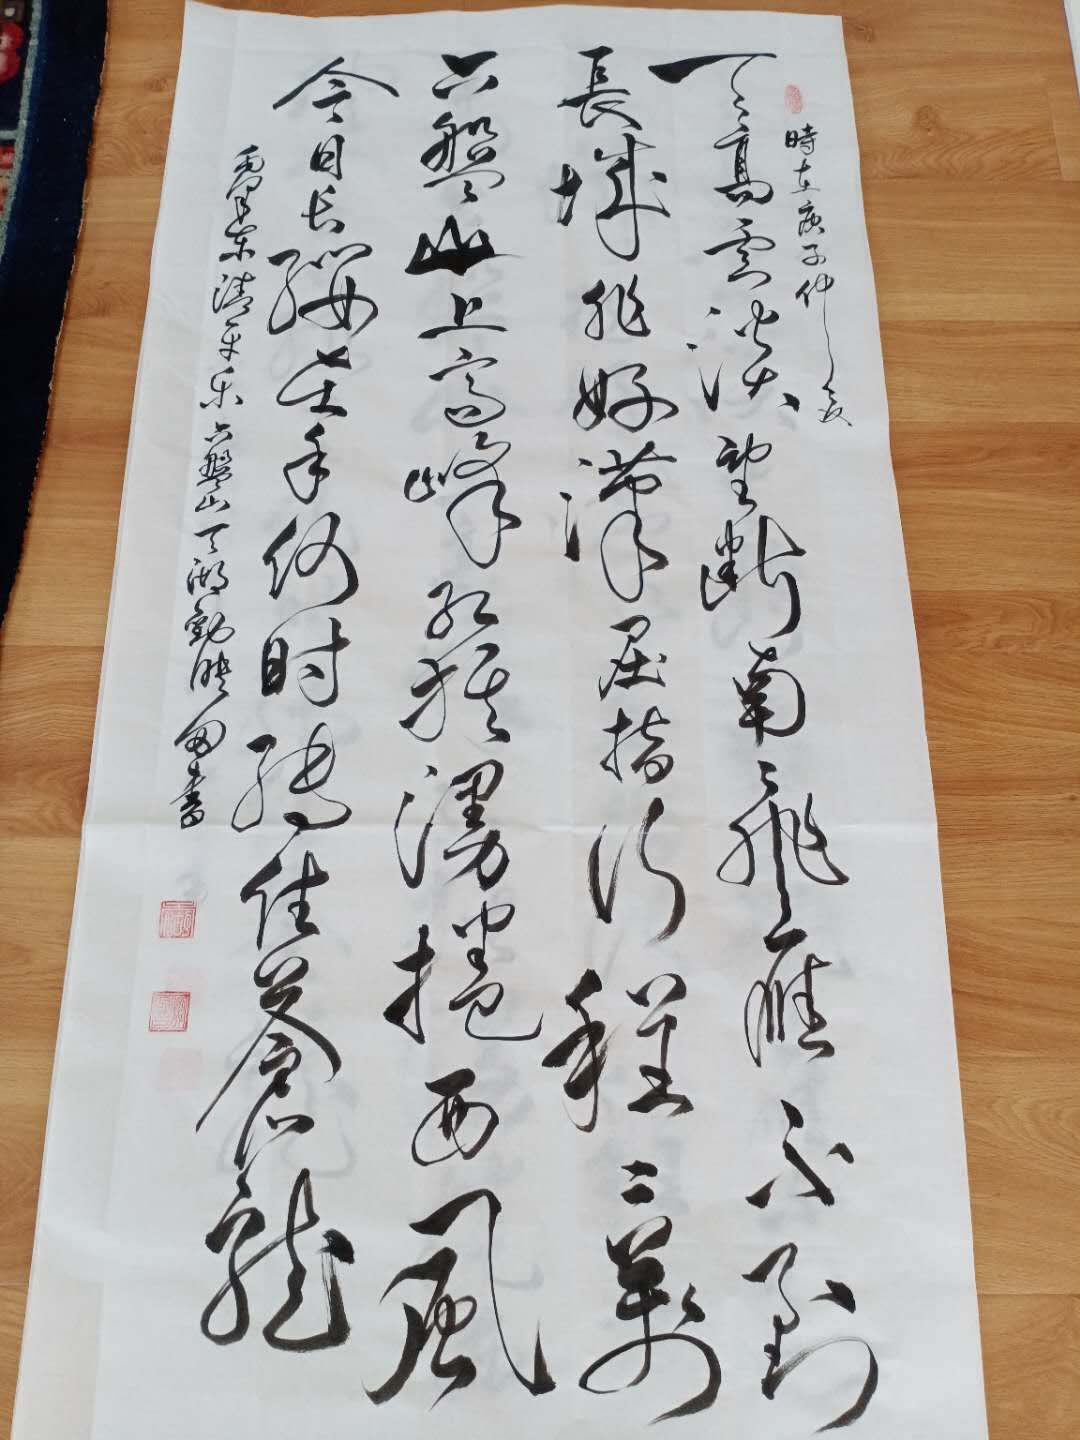 時在庚子仲夏
天高雲淡望斷南飛雁不到
長城非好漢屈指行程二萬
六盤山上高峰红旗漫捲西風
今日长缨在手何时缚住蒼龍
毛泽东清平乐六盤山書